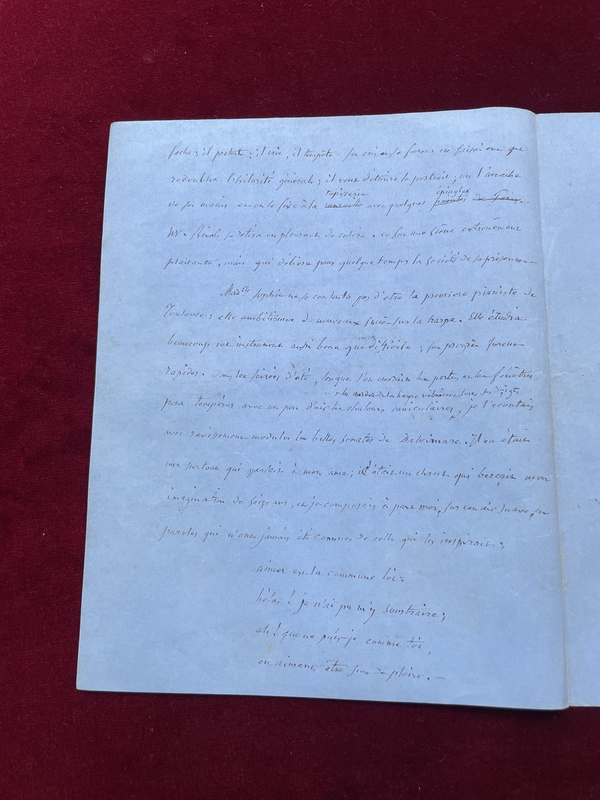 fache ; il proteste ; il crie, il tempête. Ses cris et sa fureur ne faisaient que
redoubler l'hilarité générale ; il veut détruire le portrait ; on l'arrache
de ses mains et on le fixe à la tapisserie avec quelques épingles
Mr. se retira en pleurant de colère. ce fut une scène extrêmement
plaisante, mais qui délivra pour quelque temps la société de sa présence. —
Mad.lle Sophie ne se contenta pas d'être la première pianiste de
Toulouse ; elle ambitionna de nouveaux succès sur la harpe. Elle étudia
beaucoup cet instrument aussi beau que difficile ; ses progrès furent
rapides. Dans les soirées d'été, lorsque l'on ouvrait les portes et les fenêtres
et les cordes de la harpe vibraient sous ses doigts
pour tempérer avec un peu d'air les chaleurs caniculaires, je l'écoutais
avec ravissement moduler les belles sonates de Dalvimare. Il en était
une surtout qui parlait à mon ame ; c'était un chant qui berçait mon
imagination de seize ans, et je composais à part moi, sur cet air suave, des
paroles qui n'ont jamais été connues de celle qui les inspirait :
aimer est la commune loi ;
hélas ! je n'ai pu m'y soustraire ;
ah ! que ne puis-je comme toi,
en aimant être sûr de plaire. —